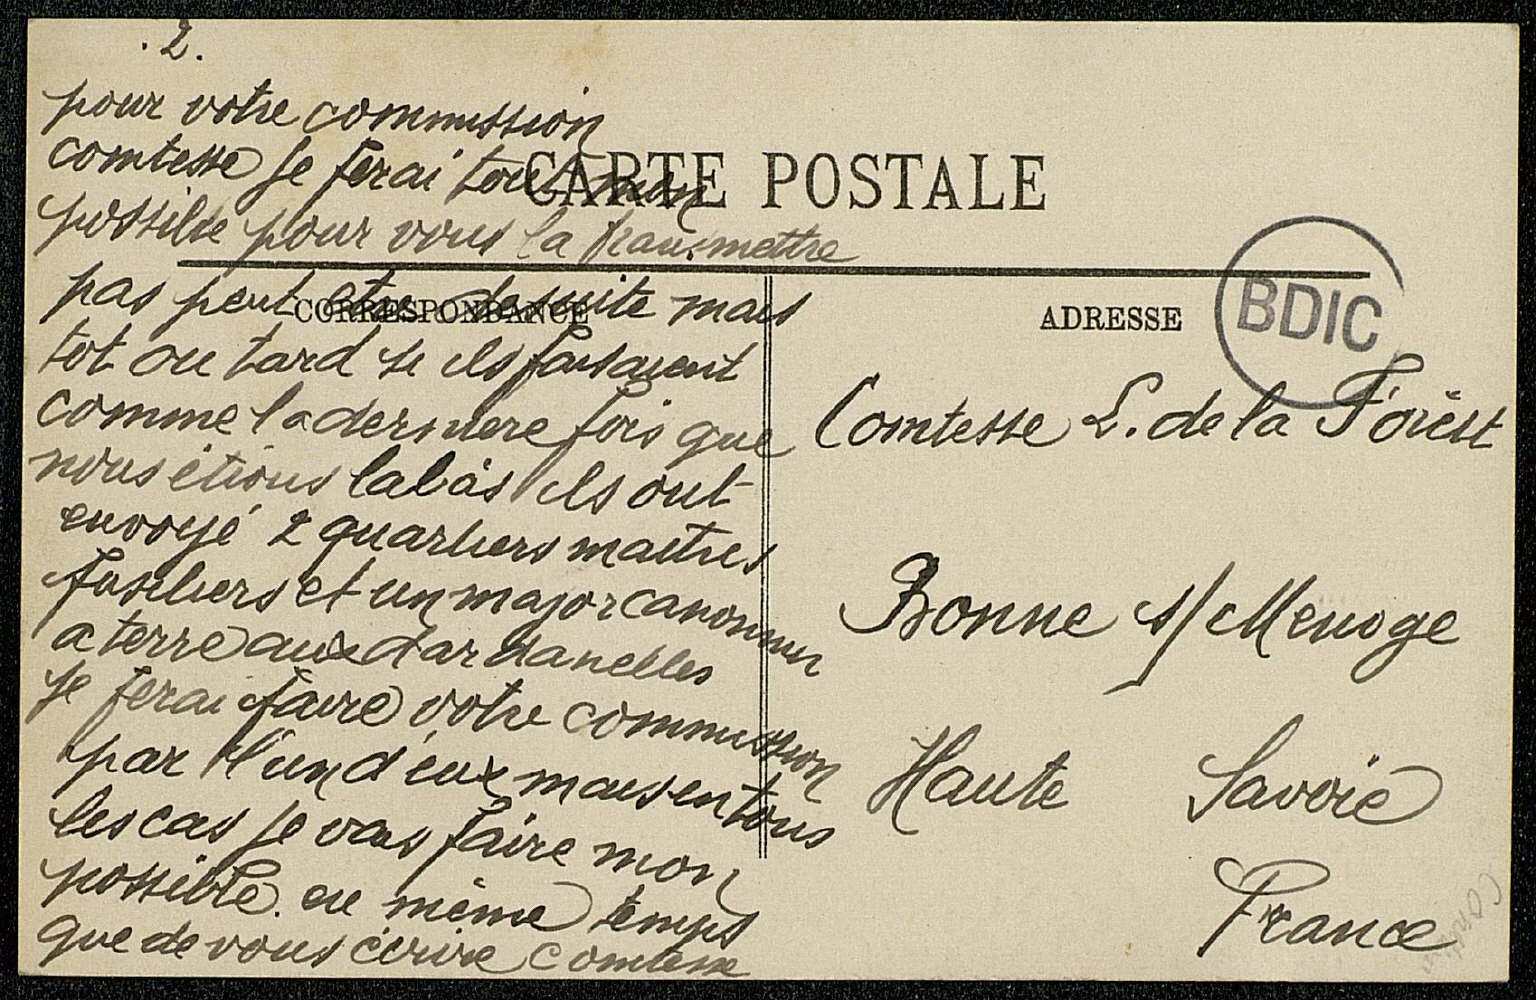 . 2.
pour votre commission
comtesse je ferai tout mon
CARTE POSTALE
possible pour vous la transmettre
pas peut etre de suite mais
CORRESPONDANCE
tot ou tard si ils faisaient
comme la derniere fois que
nous étions labàs ils ont
envoyé 2 quartiers maitres
fusiliers et un major canonnier
a terre aux dardanelles
je ferai faire votre commission
par l'un d'eux mais en tous
les cas je vais faire mon
possible. en même temps
que de vous écrire comtesse
ADRESSE
BDIC
Comtesse L. de la Forêst
Bonne s/ Menoge
Haute Savoie
France